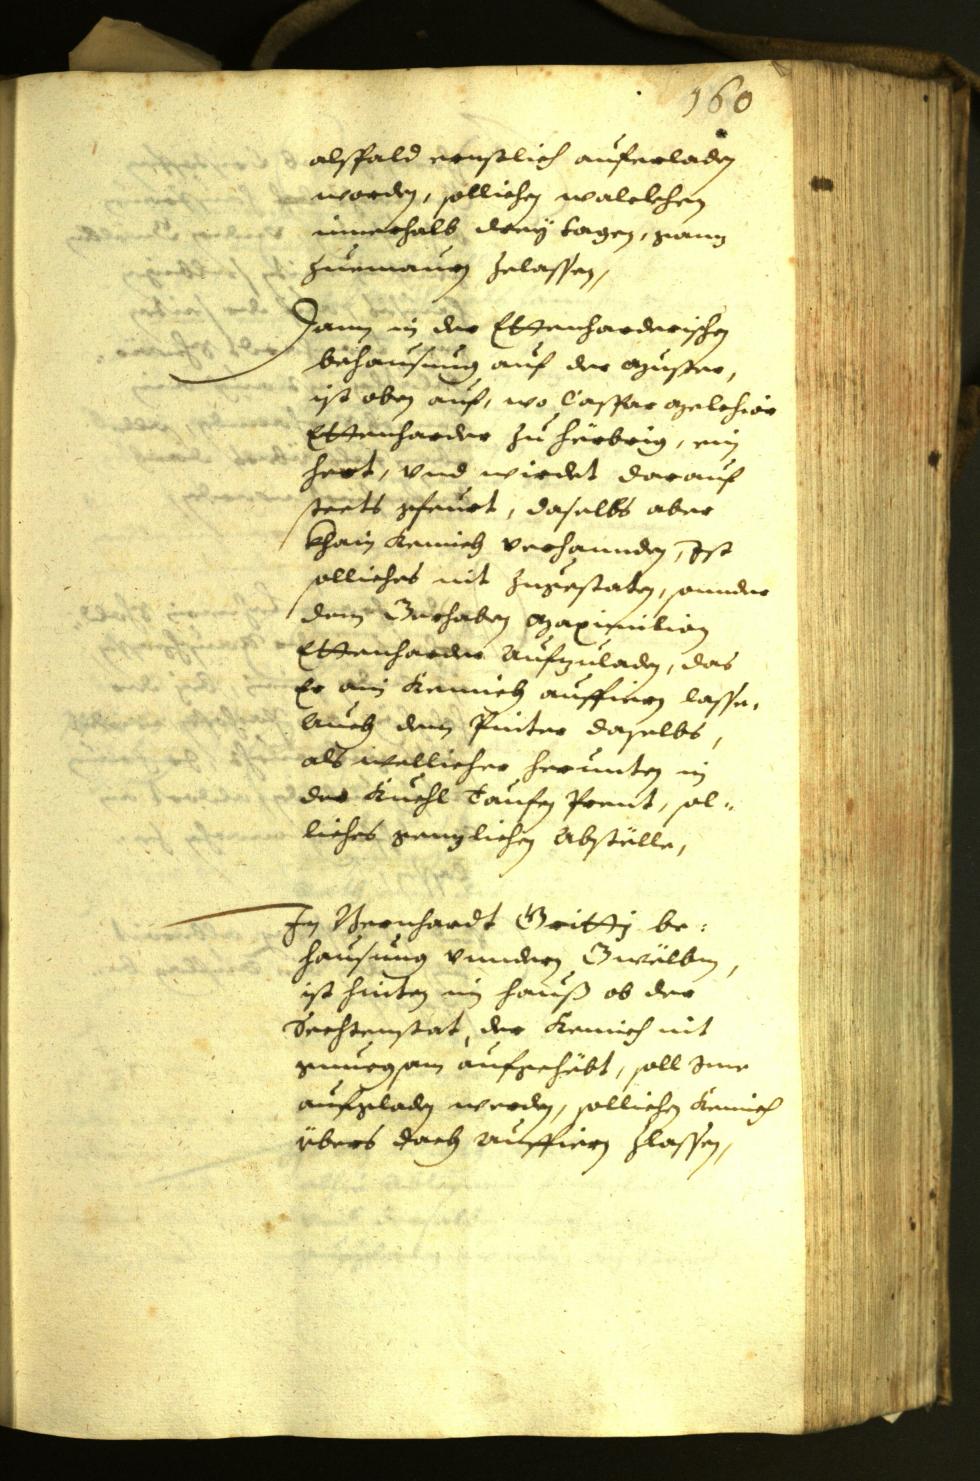 160
alspald ernstlich auferladen
worden, sollichen walelehen
innerhalb dreÿ tagen, ganz
zuemaurn zelassen,
Dann in der Ettenharderischen
behausung auf der Muster,
ist oben auf, wo Caspar Melchior
Ettenharder zu herbrig, ein
hert, vnd wirdet darauf
steets gfeurt, daselbs aber
khain Kemich verhannden, Ist
solliches nit zugestaten, sonnder
dem Gerhaben Maximilian
Ettenharder aufzuladen, das
Er ain Kemich auffiern lasse,
Auch dem Pinter daselbs,
als wellicher herunten in
der Kuchl Taufen Prent, sol„
liches genzlichen Abstölle,
In Bernhardt Gritti be„
hausung vnndern Gwölben,
ist hinten im hauß ob der
Sechtenstat der Kemich nit
gnuegsam aufgehebt, soll Ime
aufgeladen werden, sollichen Kemich
übers dach auffiern zlassen,